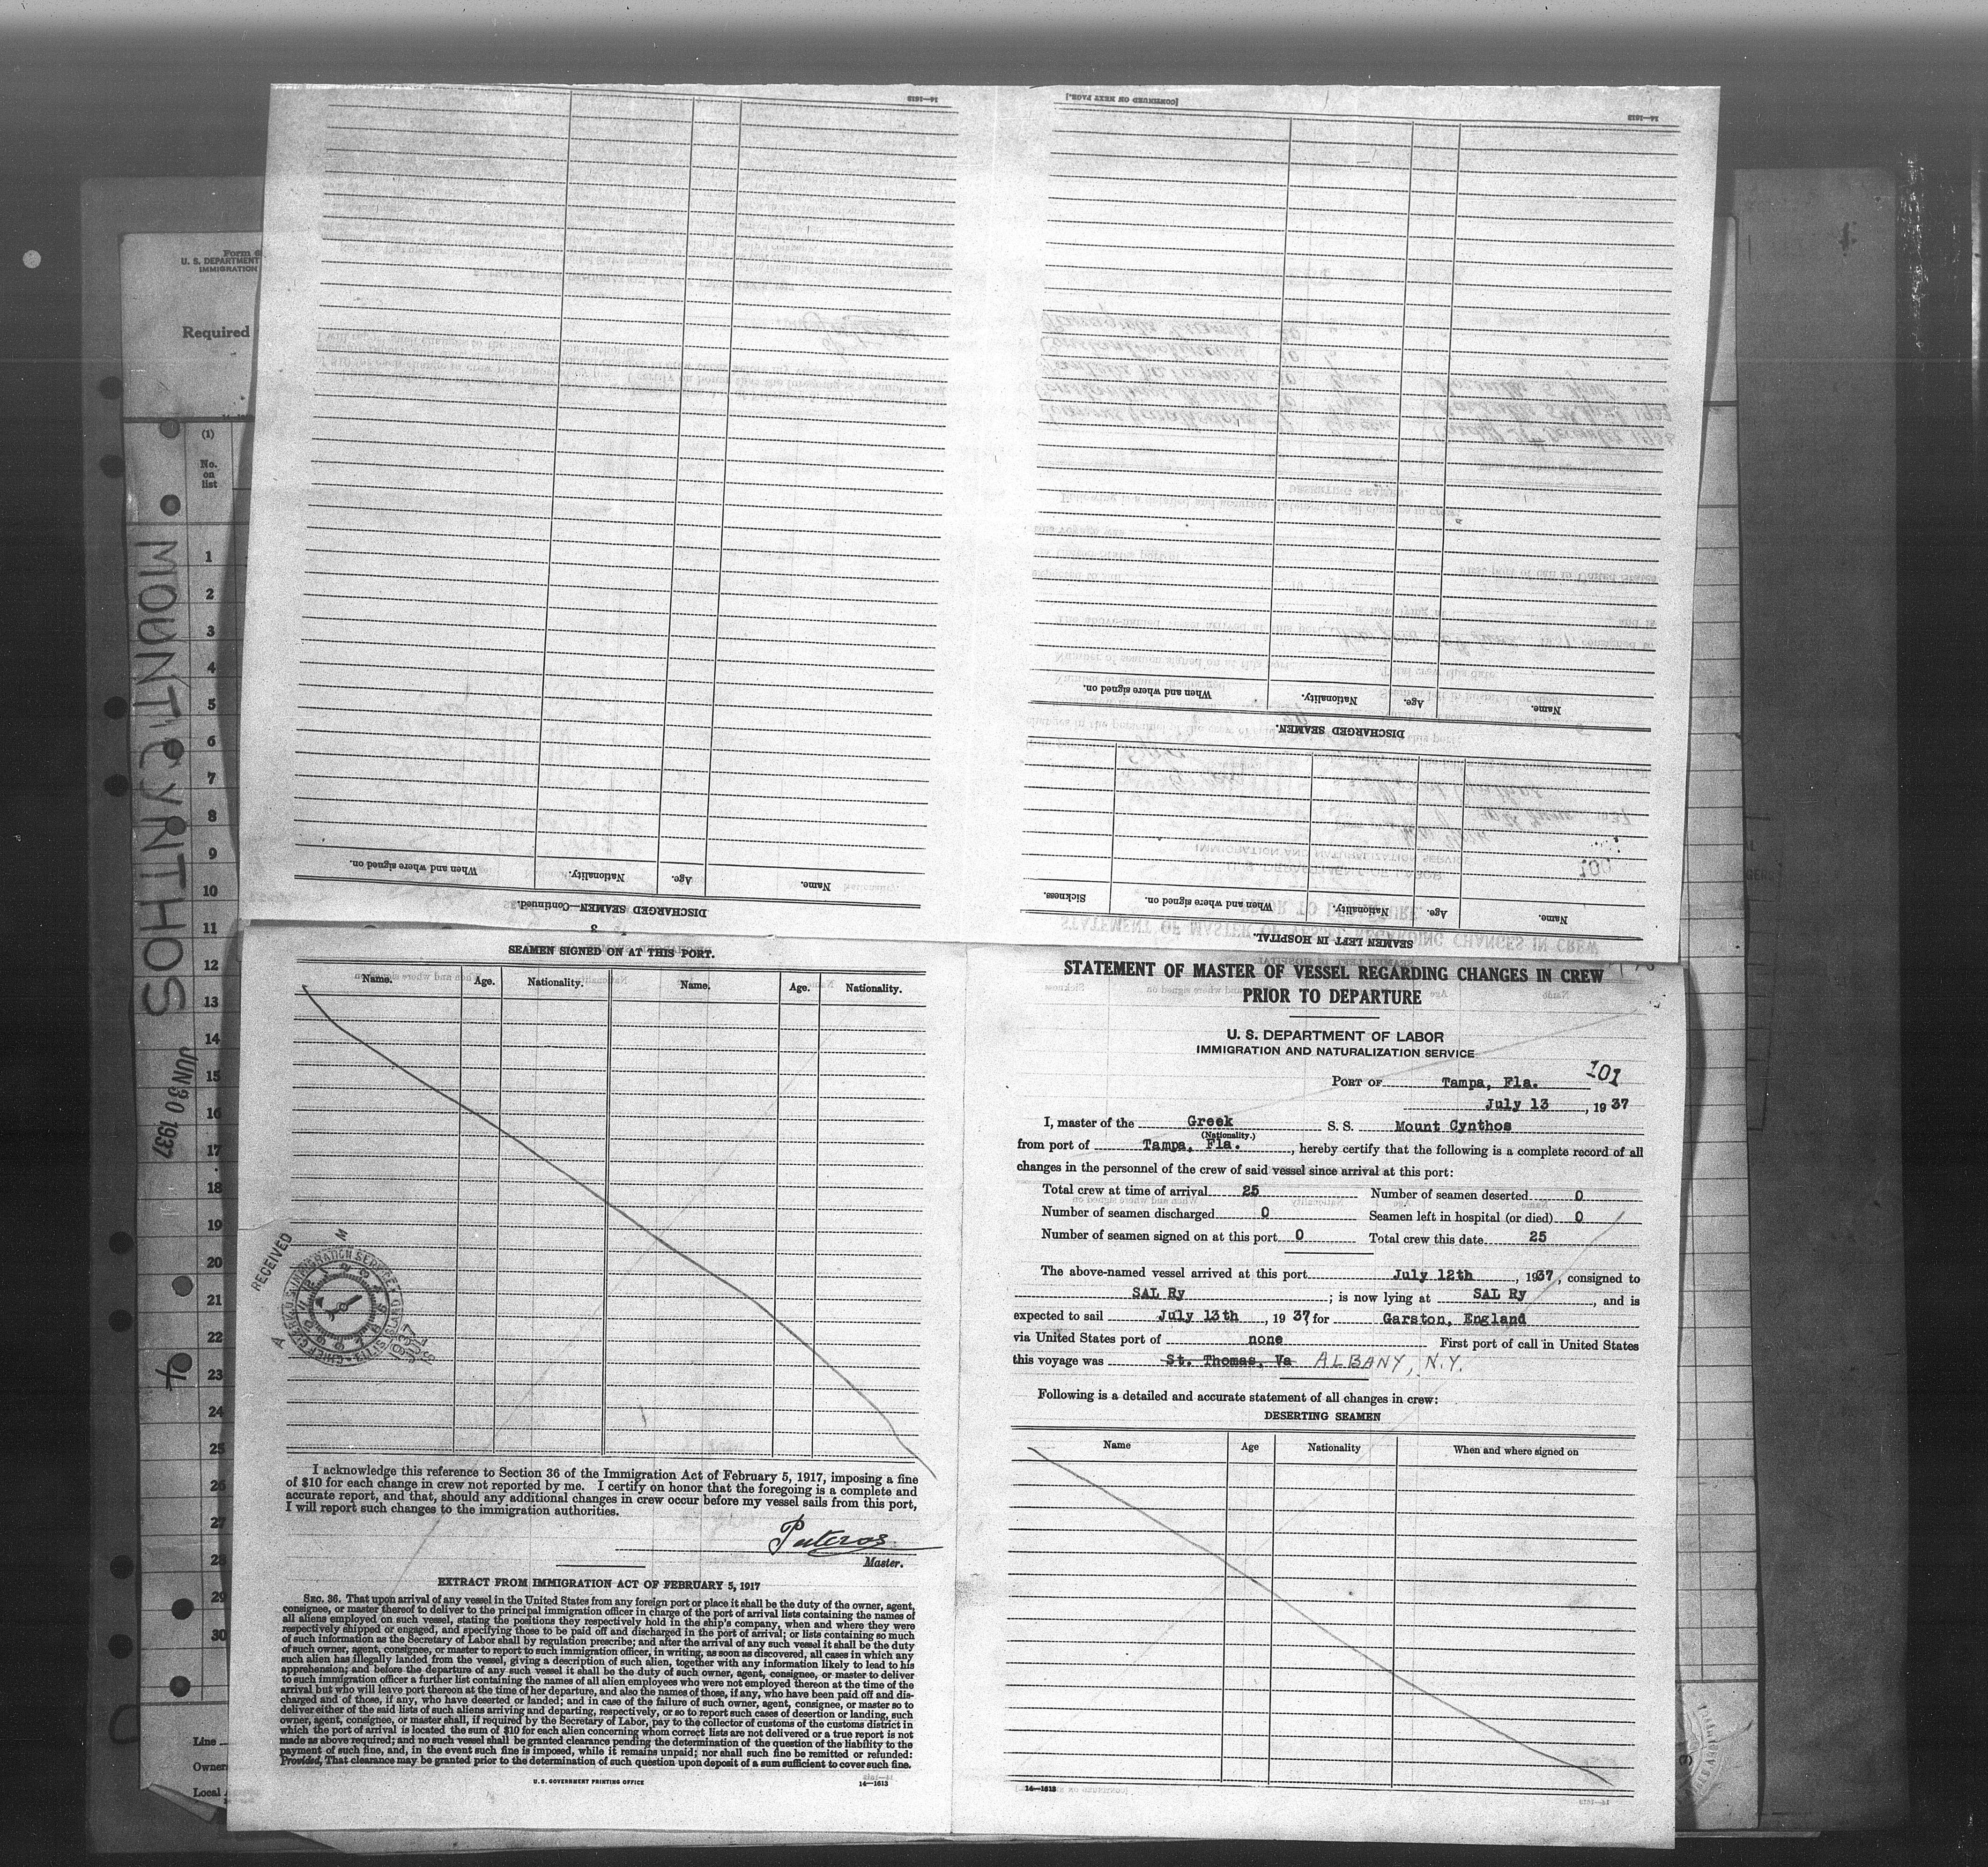 Form
U. S. DEPARTMENT
IMMIGRATION
Required
(1)
No.
on
list
1
2
3
4
5
6
7
8
9
10
11
12
13
14
15
16
17
18
19
20
21
22
23
24
25
26
27
28
29
30
Line
Owner
Local
MOUNT CYNTHOS
JUN 30 1937
14—1613
[CONTINUED ON NEXT PAGE.]
14—1613
When and where signed on.
Nationality.
Age.
Name.
DISCHARGED SEAMEN—Continued.
3
When and where signed on.
Nationality.
Age.
Name.
DISCHARGED SEAMEN.
Sickness.
When and where signed on.
Nationality.
Age.
Name.
SEAMEN LEFT IN HOSPITAL.
SEAMEN SIGNED ON AT THIS PORT.
Name. Age. Nationality. Name. Age. Nationality.
RECEIVED
I acknowledge this reference to Section 36 of the Immigration Act of February 5, 1917, imposing a fine
of $10 for each change in crew not reported by me. I certify on honor that the foregoing is a complete and
accurate report, and that, should any additional changes in crew occur before my vessel sails from this port,
I will report such changes to the immigration authorities.
Master.
EXTRACT FROM IMMIGRATION ACT OF FEBRUARY 5, 1917
SEC. 36. That upon arrival of any vessel in the United States from any foreign port or place it shall be the duty of the owner, agent,
consignee, or master thereof to deliver to the principal immigration officer in charge of the port of arrival lists containing the names of
all aliens employed on such vessel, stating the positions they respectively hold in the ship's company, when and where they were
respectively shipped or engaged, and specifying those to be paid off and discharged in the port of arrival; or lists containing so much
of such information as the Secretary of Labor shall by regulation prescribe; and after the arrival of any such vessel it shall be the duty
of such owner, agent, consignee, or master to report to such immigration officer, in writing, as soon as discovered, all cases in which any
such alien has illegally landed from the vessel, giving a description of such alien, together with any information likely to lead to his
apprehension; and before the departure of any such vessel it shall be the duty of such owner, agent, consignee, or master to deliver
to such immigration officer a further list containing the names of all alien employees who were not employed thereon at the time of the
arrival but who will leave port thereon at the time of her departure, and also the names of those, if any, who have been paid off and dis-
charged and of those, if any, who have deserted or landed; and in case of the failure of such owner, agent, consignee, or master so to
deliver either of the said lists of such aliens arriving and departing, respectively, or so to report such cases of desertion or landing, such
owner, agent, consignee, or master shall, if required by the Secretary of Labor, pay to the collector of customs of the customs district in
which the port of arrival is located the sum of $10 for each alien concerning whom correct lists are not delivered or a true report is not
made as above required; and no such vessel shall be granted clearance pending the determination of the question of the liability to the
payment of such fine, and, in the event such fine is imposed, while it remains unpaid; nor shall such fine be remitted or refunded:
Provided, That clearance may be granted prior to the determination of such question upon deposit of a sum sufficient to cover such fine.
U. S. GOVERNMENT PRINTING OFFICE 14—1613
STATEMENT OF MASTER OF VESSEL REGARDING CHANGES IN CREW
PRIOR TO DEPARTURE
U. S. DEPARTMENT OF LABOR
IMMIGRATION AND NATURALIZATION SERVICE
101
PORT OF Tampa, Fla.
July 13, 1937
I, master of the Greek S. S. Mount Cynthos
(Nationality.)
from port of Tampa, Fla., hereby certify that the following is a complete record of all
changes in the personnel of the crew of said vessel since arrival at this port:
Total crew at time of arrival 25 Number of seamen deserted 0
Number of seamen discharged 0 Seamen left in hospital (or died) 0
Number of seamen signed on at this port 0 Total crew this date 25
The above-named vessel arrived at this port July 12th, 1937, consigned to
SAL Ry ; is now lying at SAL Ry, and is
expected to sail July 13th, 1937 for Garston, England
via United States port of none First port of call in United States
this voyage was St. Thomas, Va ALBANY, N.Y.
Following is a detailed and accurate statement of all changes in crew:
DESERTING SEAMEN
Name Age Nationality When and where signed on
14—1613